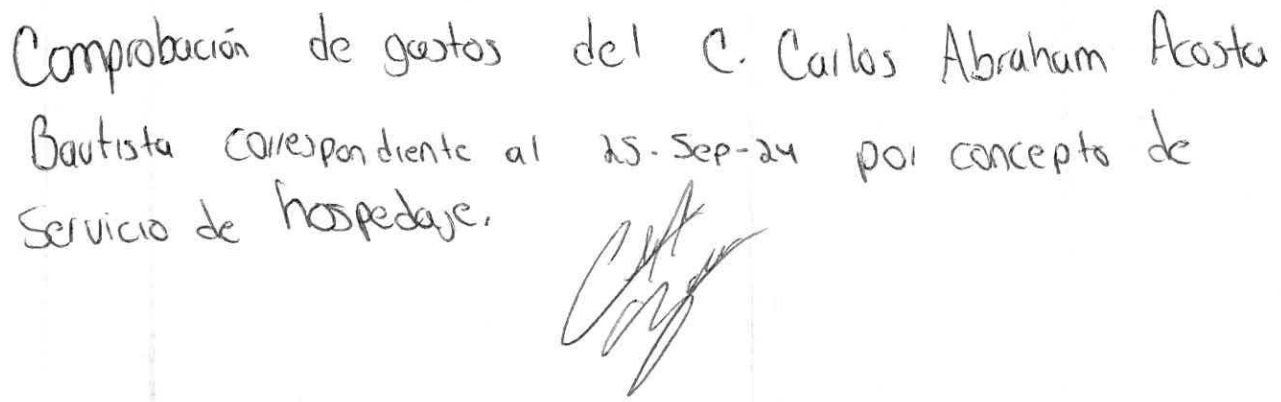 Comprobación de gastos del C. Carlos Abraham Acosta
Bautista correspondiente al 25-Sep-24 por concepto de
Servicio de hospedaje.